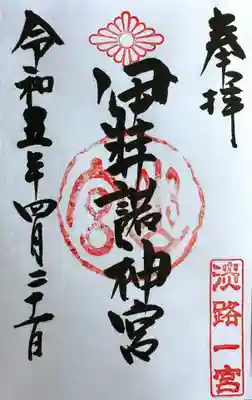 奉拝
淡路一宮
伊弉諾神宮
令和五年四月二十一日